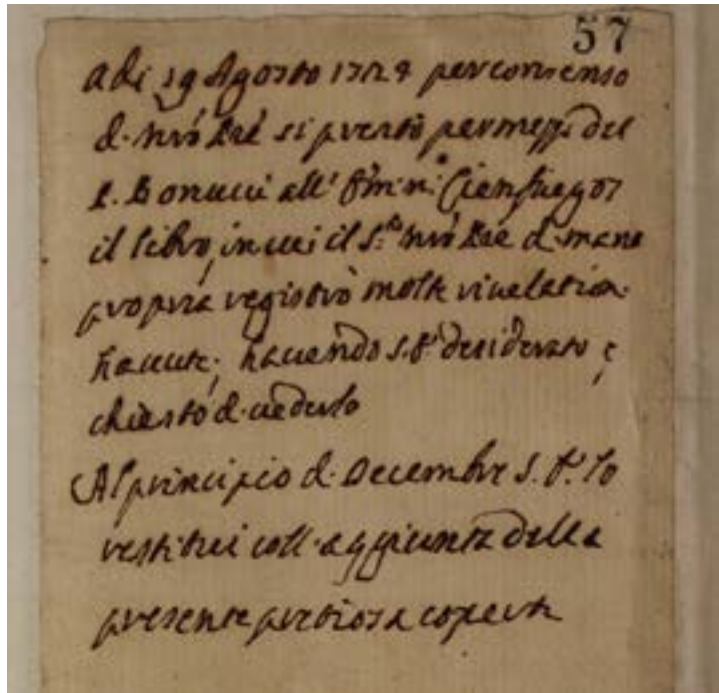 57
Adi 19 Agosto 1728 per consenso
di Nr̃o Prẽ si prestò per mezzo del
P. Bonucci all' Em̃in.º Cienfuegos
il libro, in cui il S.to Nr̃o Prẽ di mano
propria registrò molte rivelation.
havute; havendo S. E. desiderato, e
chiesto di vederlo
Al principio di Decembre S. E. lo
restitui coll' aggiunta della
presente pretiosa coperta